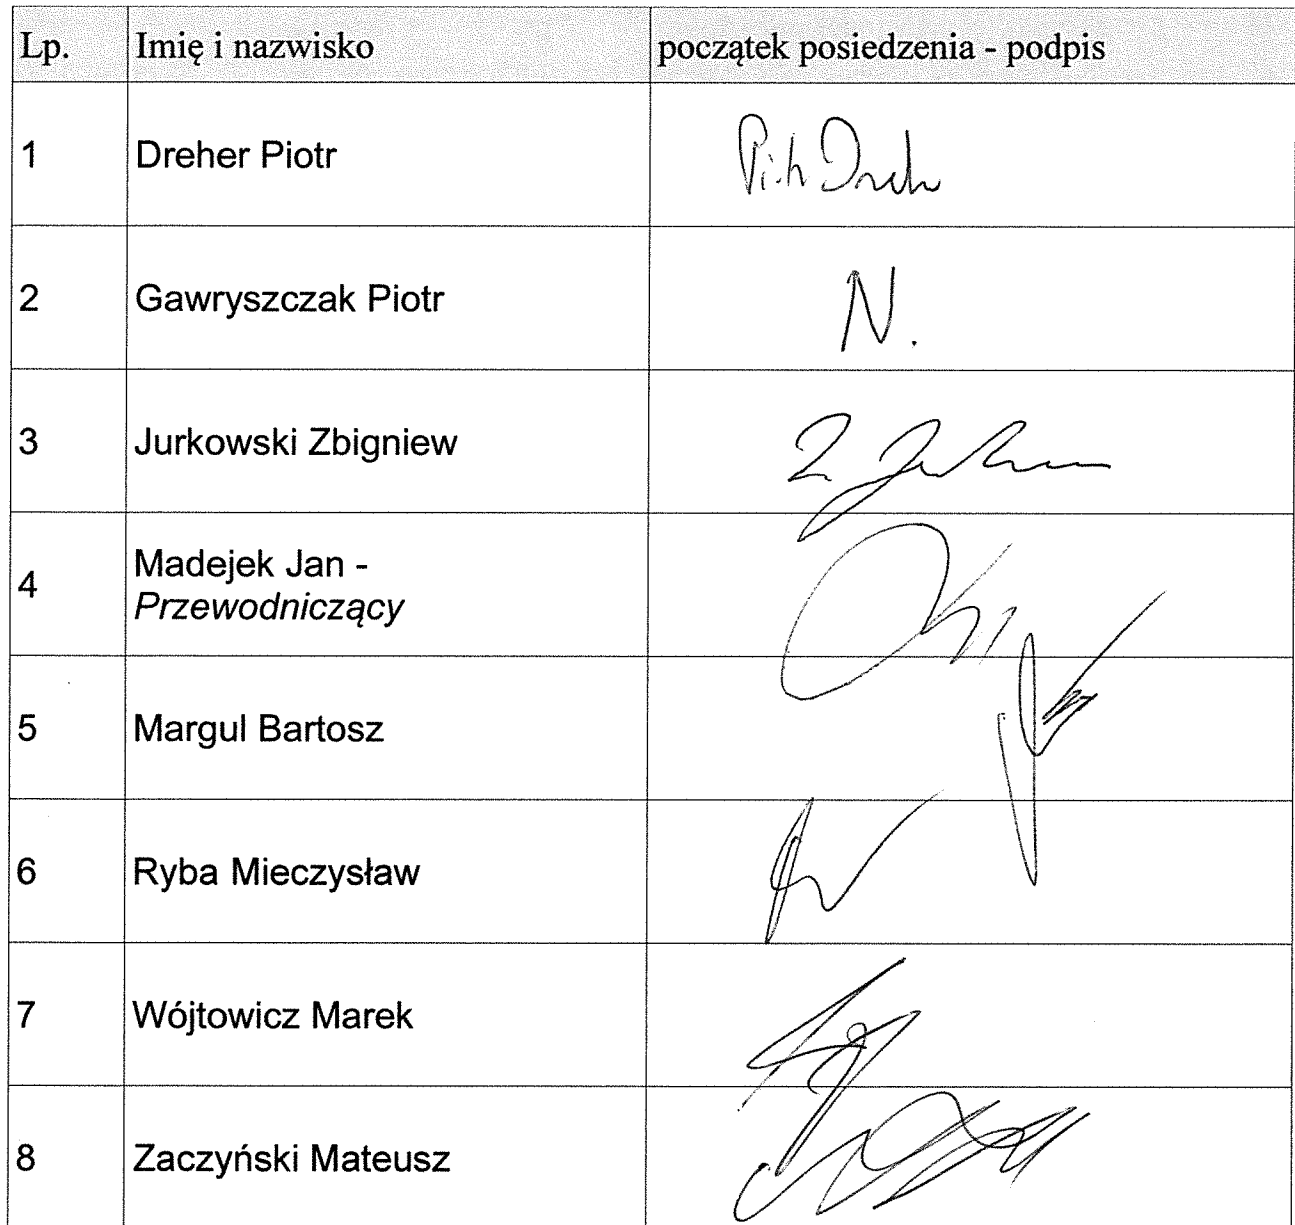 Lp. Imię i nazwisko początek posiedzenia - podpis
1 Dreher Piotr
2 Gawryszczak Piotr N.
3 Jurkowski Zbigniew
4 Madejek Jan -
Przewodniczący
5 Margul Bartosz
6 Ryba Mieczysław
7 Wójtowicz Marek
8 Zaczyński Mateusz